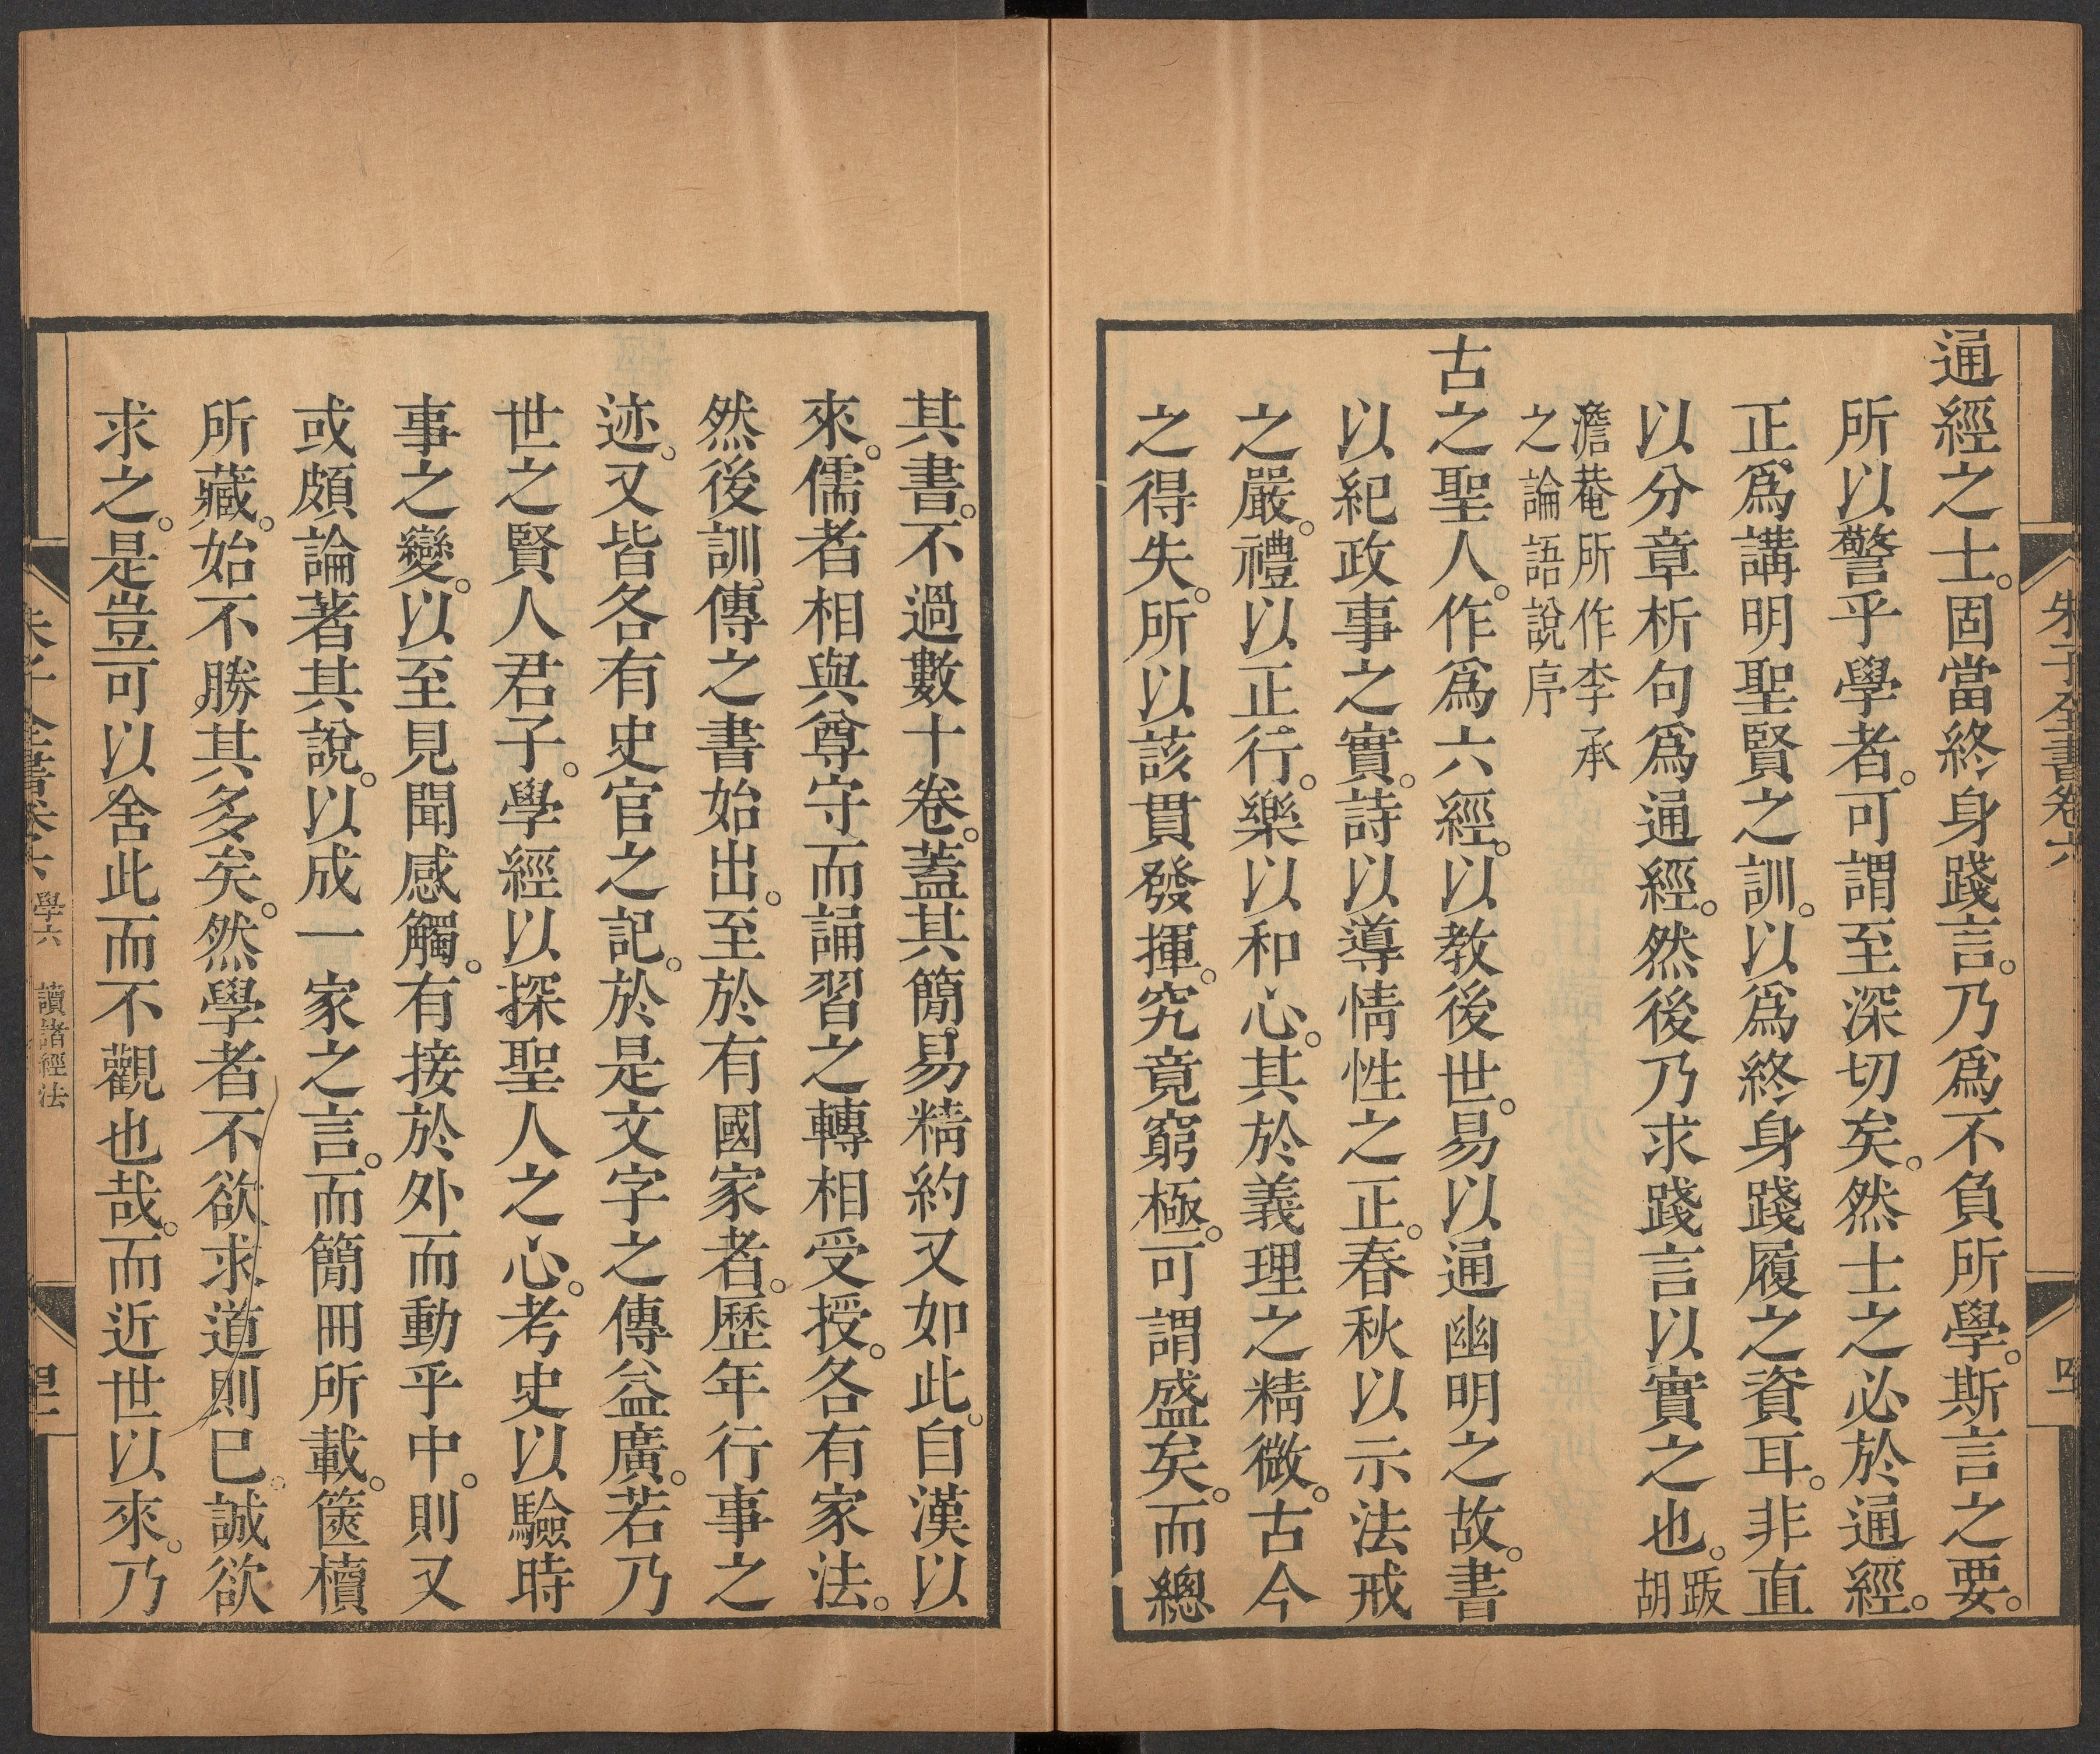 朱子全書卷六
通經之士。固當終身踐言。乃爲不負所學。斯言之要。
所以警乎學者。可謂至深切矣。然士之必於通經。
正爲講明聖賢之訓。以爲終身踐履之資耳。非直
以分章析句爲通經。然後乃求踐言以實之也。跋胡
澹菴所作李承
之論語說序
古之聖人。作爲六經。以教後世。易以通幽明之故。書
以紀政事之實。詩以導情性之正。春秋以示法戒
之嚴。禮以正行。樂以和心。其於義理之精微。古今
之得失。所以該貫發揮。究竟窮極。可謂盛矣。而總
其書。不過數十卷。蓋其簡易精約又如此。自漢以
來。儒者相與尊守而誦習之轉相受授。各有家法。
然後訓傳之書始出。至於有國家者。歷年行事之
迹。又皆各有史官之記。於是文字之傳益廣。若乃
世之賢人君子。學經以探聖人之心。考史以驗時
事之變。以至見聞感觸。有接於外而動乎中。則又
或頗論著其說。以成一家之言。而簡冊所載。篋櫝
所藏。始不勝其多矣。然學者不欲求道則已。誠欲
求之。是豈可以舍此而不觀也哉。而近世以來。乃
朱子全書卷六 學六 讀諸經法